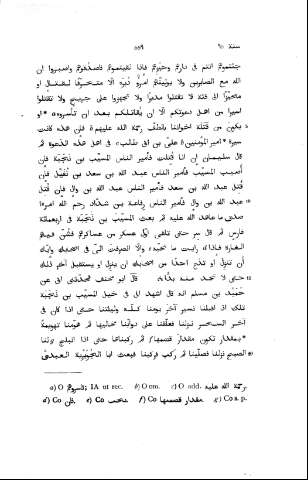 سنة ٦٥
٥٥٩
جئتموهم انتم فى دارهم وحيزهم فاذا لقيتموهم فاصدقوهم واصبروا ان
الله مع الصابرين ولا يوليهم امرؤ دبره الا متحرفا لقتال او
متحيزا الى فئة لا تقتلوا مدبرا ولا تجهزوا على جريح ولا تقتلوا
اسيرا من اهل دعوتكم الا ان يقاتلكم بعد ان تأسروه او
يكون من قتلة اخواننا بالطف رحمة الله عليهم فان هذه كانت
سيرة امير المؤمنين على بن ابى طالب فى اهل هذه الدعوة ثم
قال سليمان ان انا قتلت فأمير الناس المسيب بن نجبة فان
أصيب المسيب فأمير الناس عبد الله بن سعد بن نفيل فان
قتل عبد الله بن سعد فأمير الناس عبد الله بن وال فان قتل
عبد الله بن وال فأمير الناس رفاعة بن شداد رحم الله امرءا
صدق ما عاهد الله عليه ثم بعث المسيب بن نجبة فى اربعمائة
فارس ثم قال سر حتى تلقى اول عسكر من عساكرهم فشن فيهم
الغارة فاذا رايت ما تحبه والا انصرفت الى فى اصحابك واياك
ان تنزل او تدع احدا من اصحابك ان ينزل او يستقبل آخر ذلك
حتى لا تجد منه بدا قال ابو مخنف فحدثنى ابى عن
حميد بن مسلم انه قال اشهد انى فى خيل المسيب بن نجبة
تلك اذ اقبلنا نسير آخر يومنا كله وليلتنا حتى اذا كان فى
آخر السحر نزلنا فعلقنا على دوابنا مخاليها ثم هومنا تهويمة
بمقدار تكون مقدار قضمها ثم ركبناها حتى اذا انبلج لنا
الصبح نزلنا فصلينا ثم ركب فركبنا فبعث ابا الجويرية العبدى
a) O ; IA ut rec. b) O om. c) O add. رحمة الله عليه
d) Co فى. e) Co f) Co مقدار قضمها. g) Co s. p.